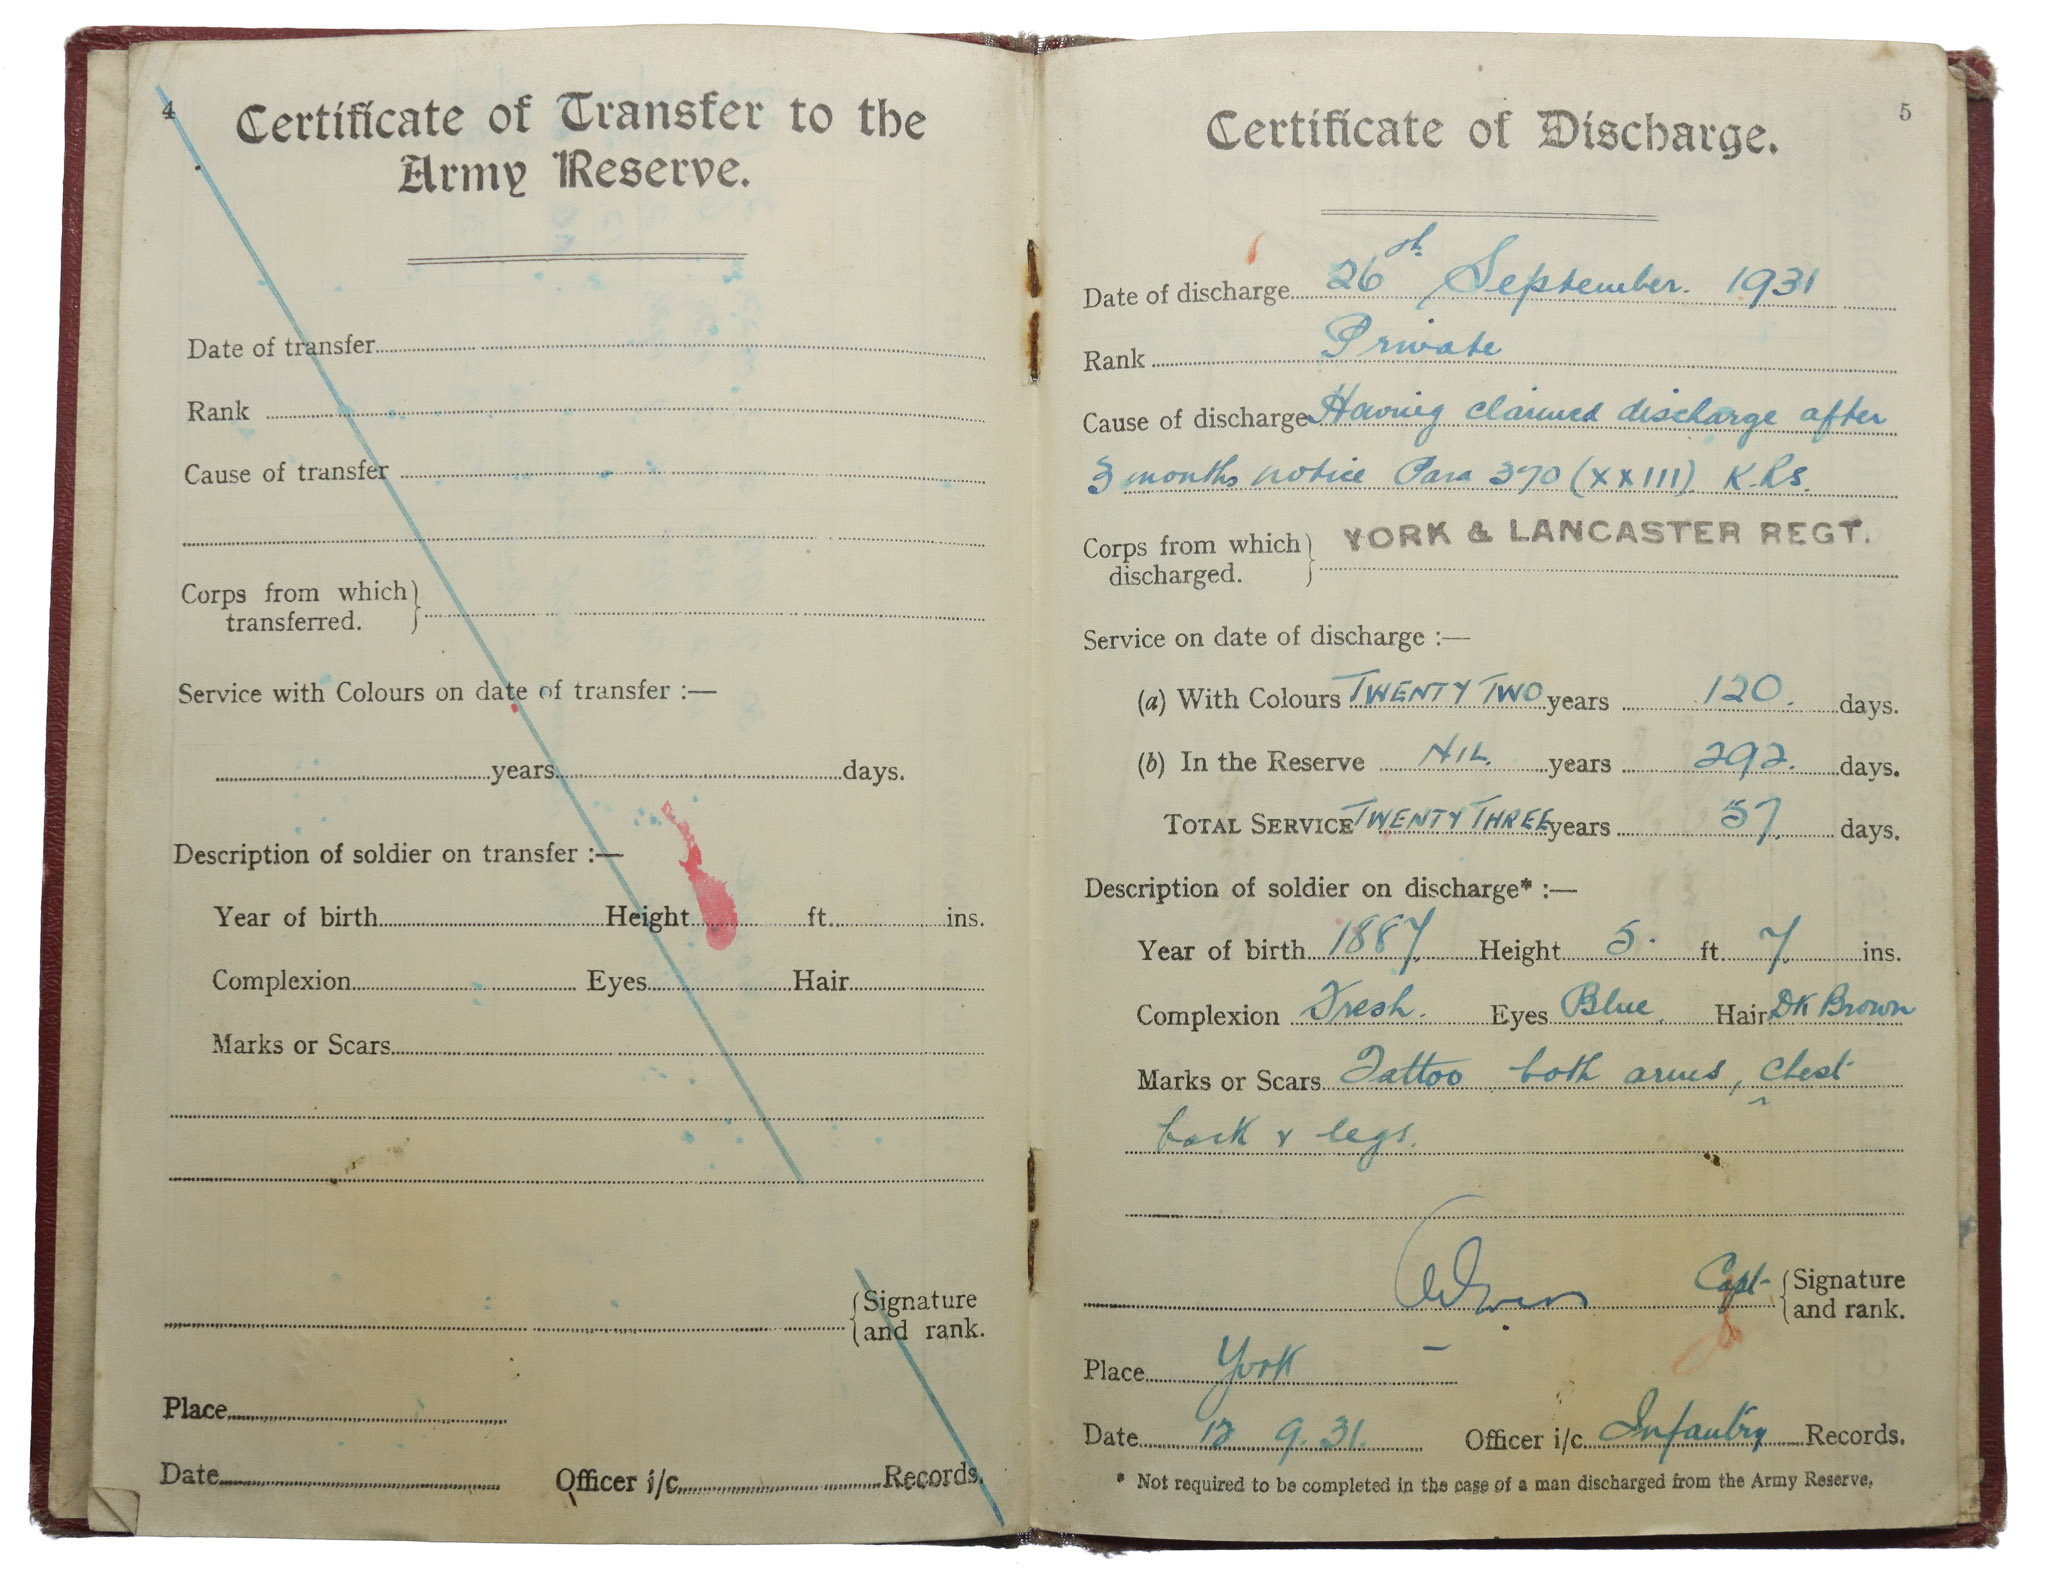 4
Certificate of Transfer to the
Army Reserve.
Date of transfer
Rank
Cause of transfer
Corps from which
transferred.
Service with Colours on date of transfer :—
years days.
Description of soldier on transfer :—
Year of birth Height ft. ins.
Complexion Eyes Hair
Marks or Scars
Signature
and rank.
Place
Date Officer i/c Records.
5
Certificate of Discharge.
Date of discharge 26th September. 1931
Rank Private
Cause of discharge Having claimed discharge after
3 months notice Para 370 (XXIII) K.Rs.
Corps from which
discharged. YORK & LANCASTER REGT.
Service on date of discharge :—
(a) With Colours TWENTY TWO years 120. days.
(b) In the Reserve NIL. years 292. days.
TOTAL SERVICE TWENTY THREE years 57. days.
Description of soldier on discharge* :—
Year of birth 1887. Height 5. ft. 7. ins.
Complexion Fresh. Eyes Blue. Hair DK Brown
Marks or Scars Tattoo both arms, chest
back & legs.
Capt Signature
and rank.
Place York
Date 9.31. Officer i/c Infantry Records.
* Not required to be completed in the case of a man discharged from the Army Reserve.